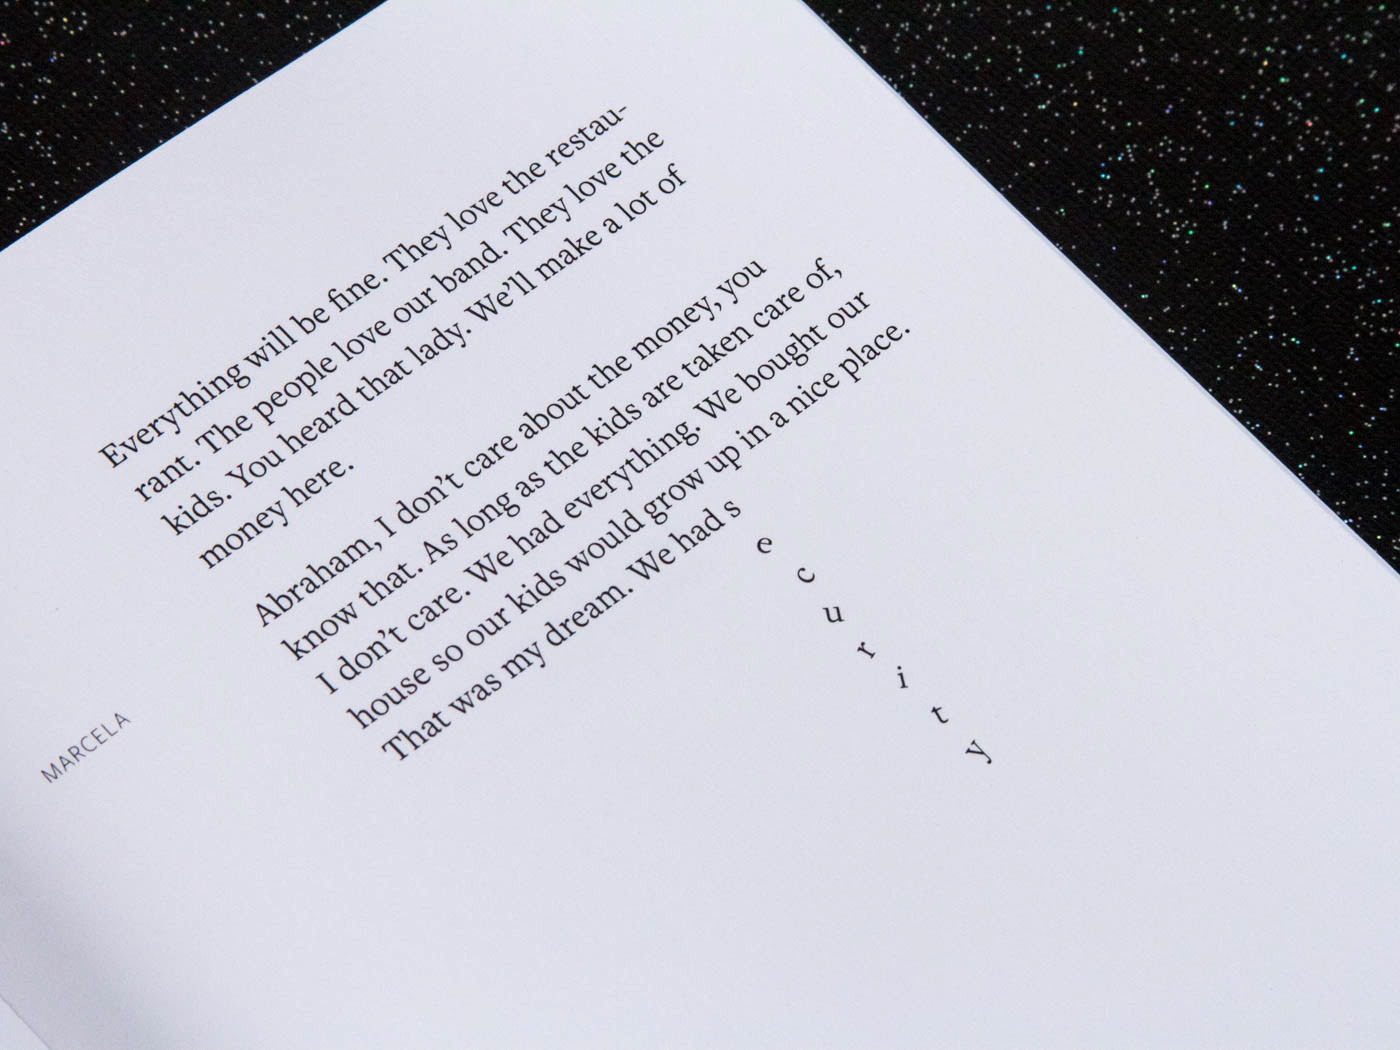 Everything will be fine. They love the restau-
rant. The people love our band. They love the
kids. You heard that lady. We’ll make a lot of
money here.
Abraham, I don’t care about the money, you
know that. As long as the kids are taken care of,
I don’t care. We had everything. We bought our
house so our kids would grow up in a nice place.
That was my dream. We had s
e
c
u
r
i
t
y
MARCELA